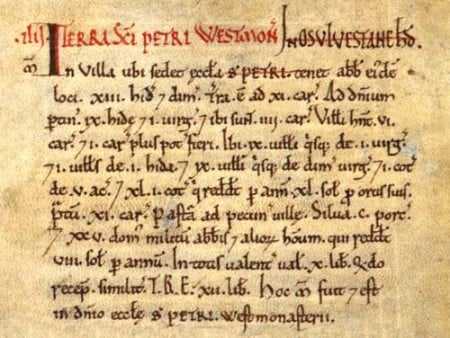 .IIII. TERRA SC̄I PETRI WESTMON̄. IN OSULVESTANE HD̄.
M̄ In Villa ubi sedet ęccl̄a S PETRI. tenet abb̄ eiđē
loci. xiii. hiđ 7 dim̄. Tr̄a. ē ad xi. car̄. Ad dn̄ium
ꝑtin̄. ix. hidę 7 i. virg̃. 7 ibi sun̄t. iiii. car̄. Vill̄i hn̄t. vi.
car̄. 7 i. car̄ plus pot̄ fieri. Ibi. ix. uill̄i qisq; de. i. virg̃.
7 i. uill̄s de. i. hida. 7 ix. uill̄i qisq; de dim̄ virg̃. 7 i. cot̄
de. v. ac̄. 7 xl.i. cot̄ q redd̄t ꝑ ann̄. xl. sol̄ ꝓ ortis suis.
P̃tū. xi. car̄. Past̄a ad pecun̄ uillę. Silua. c. porc̄.
7 xxv. dom̄ militū abb̄is 7 alioꝝ hoūm. qui redd̄t
viii. sol̄ ꝑ annū. In totis ualent̄ ual̄. x. lib̄. Qđo
recep̄. similit̄. T.R.E. xii. lib̄. Hoc m̄ fuit 7 est
in dn̄io ęccl̄ę S PETRI. westmonasterii.